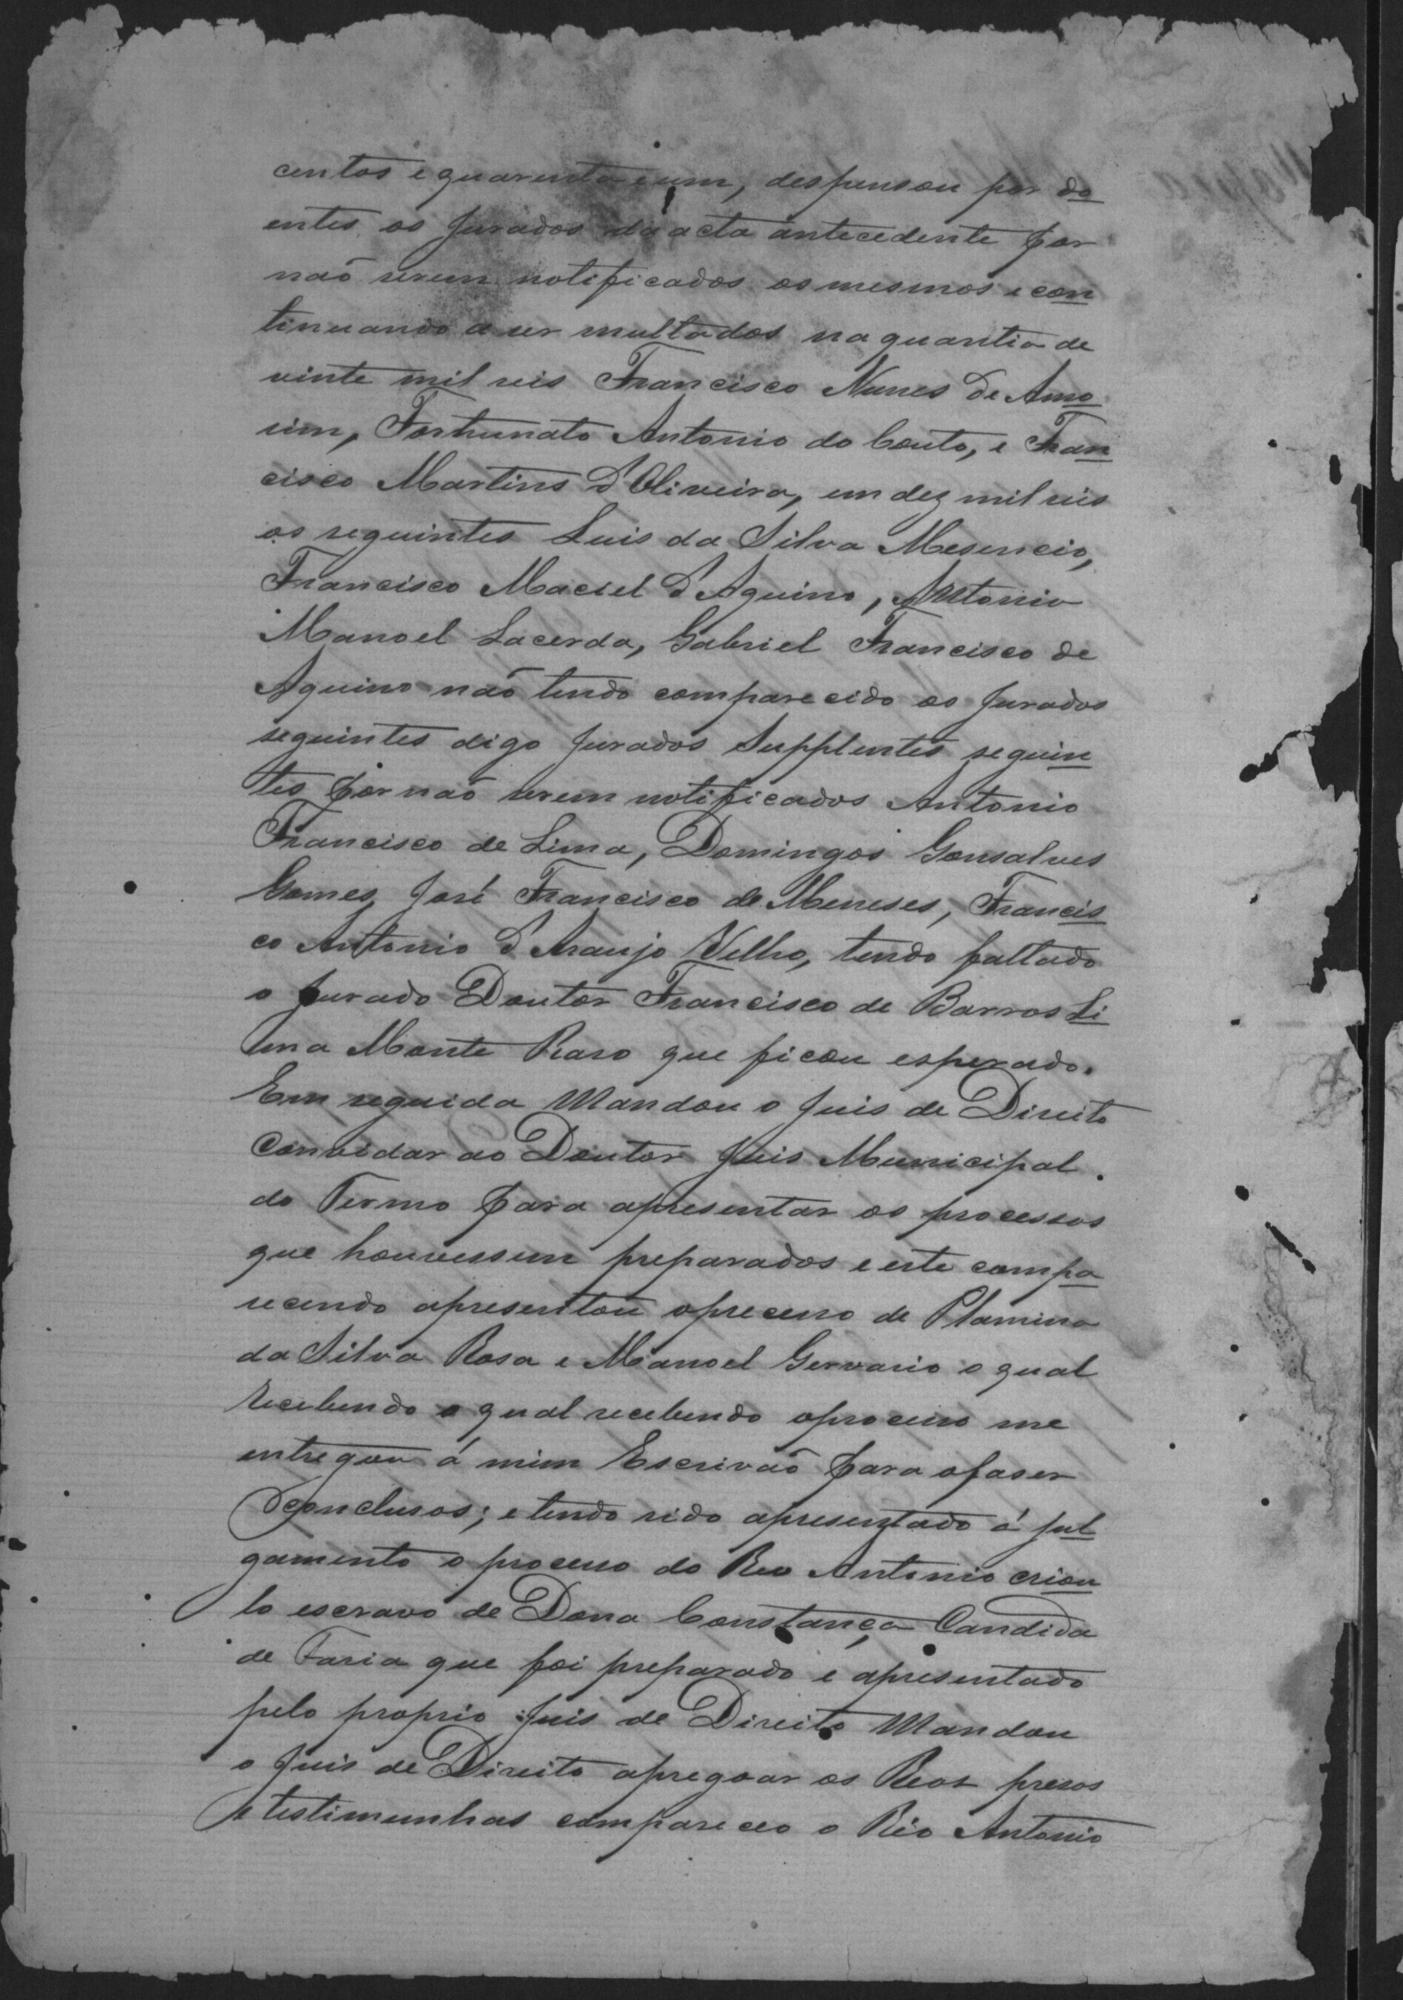 centos e quarenta e um, despensou por do
entes os Jurados da acta antecedente por
naõ serem notificados os mesmos e con
tinuando a ser multados na quantia de
vinte mil reis Francisco Nunes de Amo
rim, Fortunato Antonio do Couto, e Fran
cisco Martins d'Oliveira, em dez mil reis
os seguintes Luis da Silva Mesencio,
Francisco Maciel d'Aquino, Antonio
Manoel Lacerda, Gabriel Francisco de
Aquino naõ tendo comparecido os Jurados
seguintes digo Jurados Supplentes seguin
tes por naõ serem notificados Antonio
Francisco de Lima, Domingos Gonsalves
Gomes, José Francisco de Meneses, Francis
co Antonio d'Araujo Velho, tendo faltado
o Jurado Doutor Francisco de Barros Li
ma Monte Raso que ficou esperado.
Em seguida Mandou o Juis de Direito
Convidar ao Doutor Juis Municipal
do Termo para apresentar os processos
que houvessem preparados e este compa
recendo apresentou o processo de Flamino
da Silva Rosa e Manoel Gervasio o qual
recebendo o qual recebendo o processo me
entregou á mim Escrivaõ para o faser
conclusos; e tendo sido apresentado á jul
gamento o processo do Reo Antonio criou
lo escravo de Dona Constança Candida
de Faria que foi preparado e apresentado
pelo proprio Juis de Direito Mandou
o Juis de Direito apregoar os Reos presos
e testimunhas compareceo o Réo Antonio